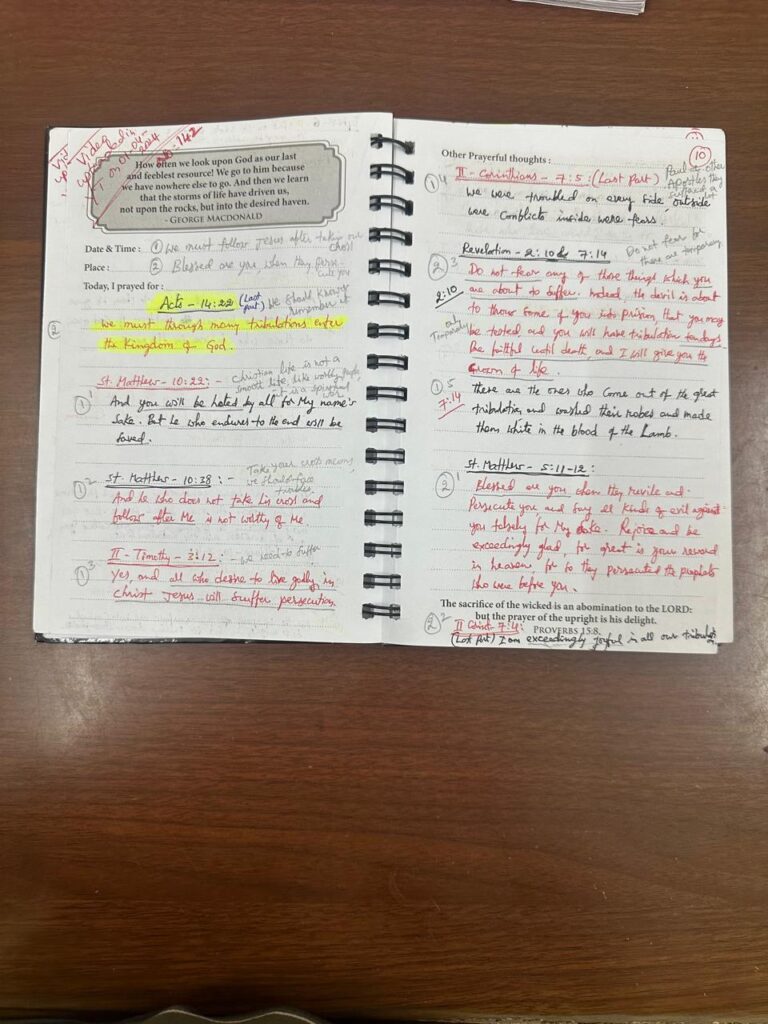 Video
on 01-04-2024
How often we look upon God as our last
and feeblest resource! We go to him because
we have nowhere else to go. And then we learn
that the storms of life have driven us,
not upon the rocks, but into the desired haven.
- GEORGE MACDONALD
Date & Time : ① We must follow Jesus after taking our
Place : ② Blessed are you, when they perse-
cute you
Today, I prayed for :
Acts - 14:22 (Last
Part) We should know &
remember it
We must through many tribulations enter
the Kingdom of God.
St. Matthew - 10:22 : - Christian life is not a
smooth life, like worldly people,
it is a spiritual
war
①1 And you will be hated by all for My name's
Sake. But he who endures to the end will be
Saved.
①2 St. Matthew - 10:38 : - Take your cross means,
we should face
troubles
And he who does not take his cross and
follow after Me is not worthy of Me.
II - Timothy - 3:12 : - We need to suffer
①3 Yes, and all who desire to live godly in
Christ Jesus will suffer persecution.
10
Other Prayerful thoughts :
①4 II - Corinthians - 7:5 : (Last Part) Paul & other
Apostles they
We were troubled on every side, outside
were Conflicts inside were fears.
Revelation - 2:10 & 7:14 Do not fear for
these are temporary
②3 Do not fear any of those things which you
2:10 are about to suffer. Indeed, the devil is about
to throw some of you into prison, that you may
only Temporary be tested and you will have tribulation ten days.
Be faithful until death, and I will give you the
Crown of life.
①5 These are the ones who Come out of the great
7:14 tribulation and washed their robes and made
them white in the blood of the Lamb.
St. Matthew - 5:11-12 :
②1 Blessed are you when they revile and
Persecute you and Say all Kinds of evil against
you falsely for My Sake. Rejoice and be
exceedingly glad, for great is your reward
in heaven, for so they persecuted the prophets
who were before you.
The sacrifice of the wicked is an abomination to the LORD:
but the prayer of the upright is his delight.
PROVERBS 15:8.
②2 II Corint - 7:4 :
(Last Part) I am exceedingly joyful in all our